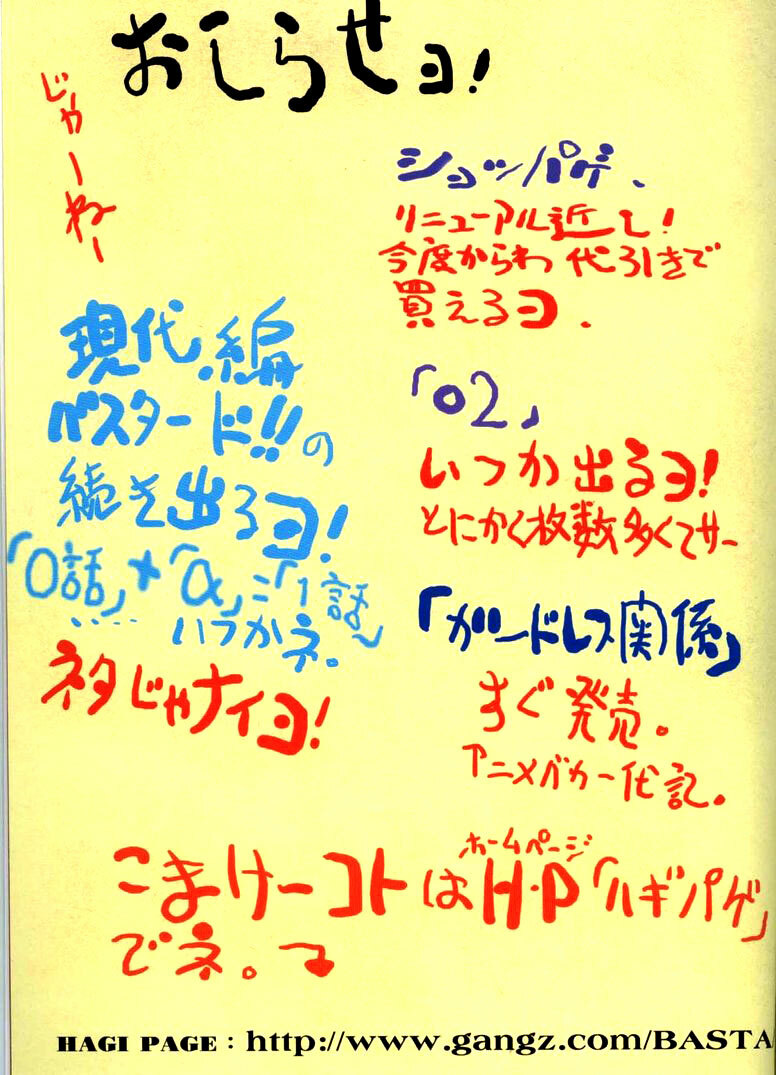 おしらせヨ!
ショッパゲ、
リニューアル近し!
今度からわ 代引きで
買えるヨ.
「02」
いつか出るヨ!
とにかく枚数多くてサー
「ガードレス関係」
すぐ発売。
アニメバカ一代記。
じゃーねー
現代編
バスタード!!の
続き出るヨ!
「0話」+「α」=「1話」
……いつかネ。
ネタじゃナイヨ!
こまけーコトはH・P「ハギパゲ」
ホームページ
でネ。
HAGI PAGE : http://www.gangz.com/BASTA